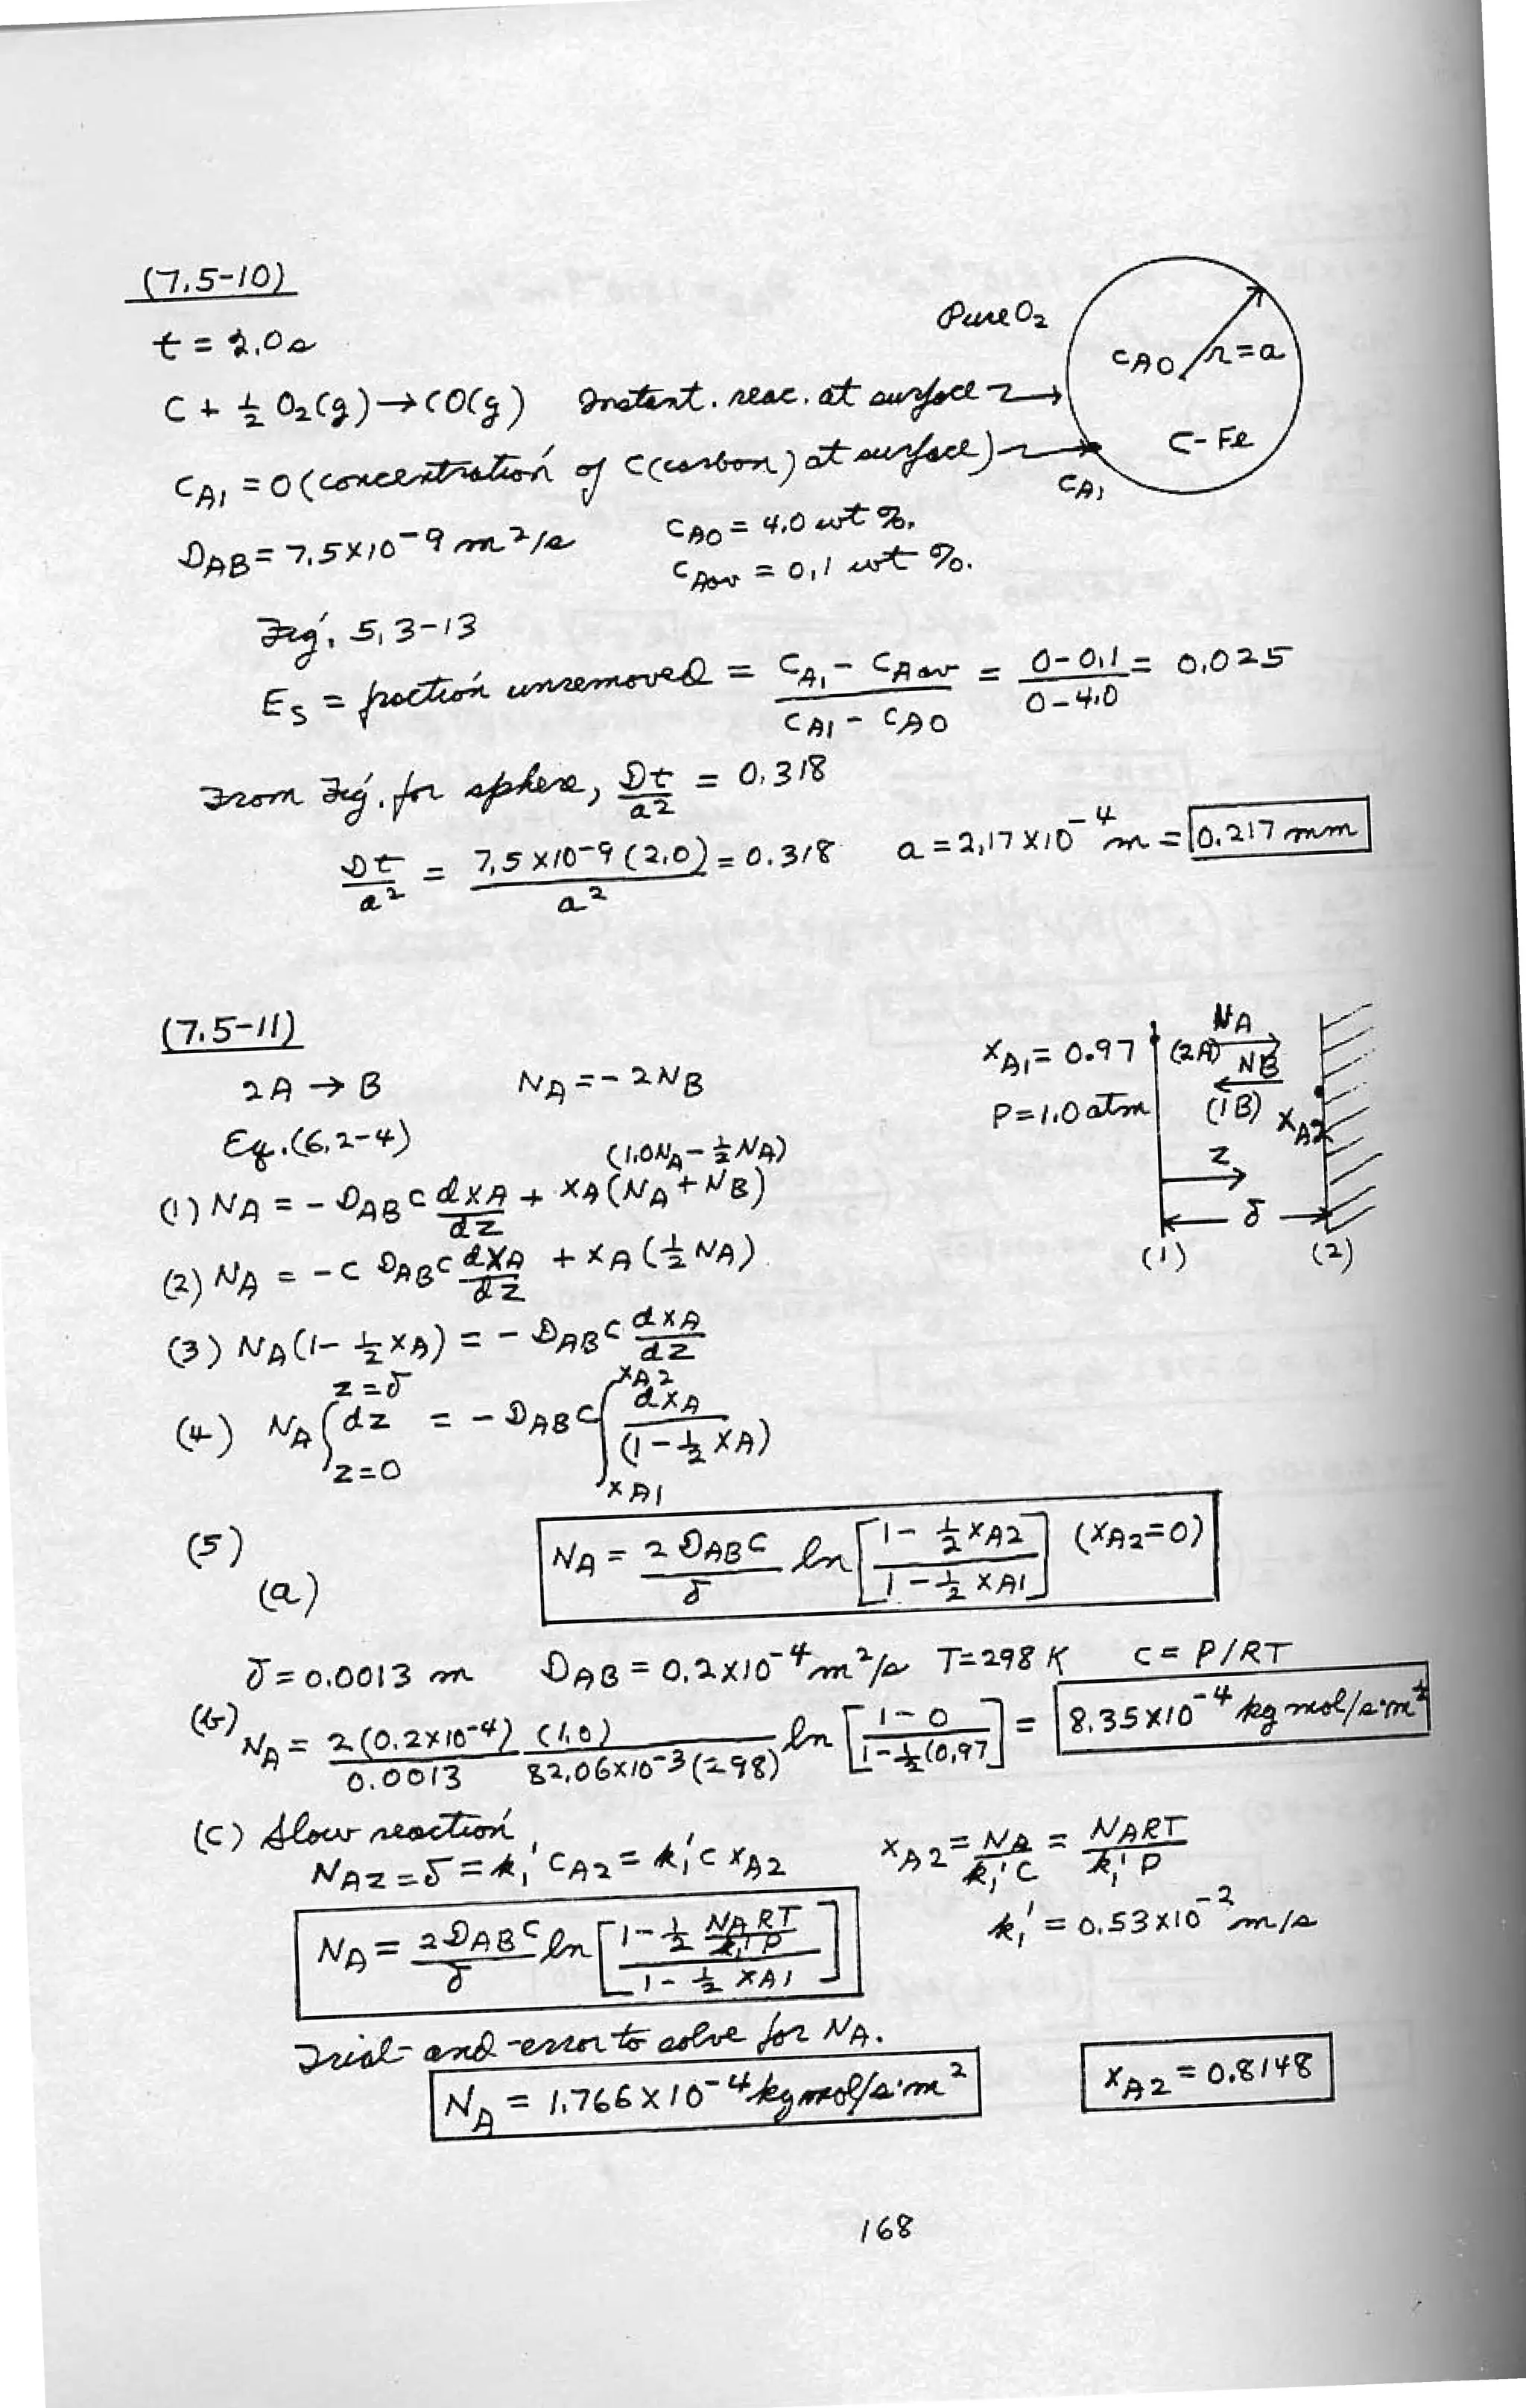 (7.5-10)
t = 2.0 s
Pure O₂
C_A0 r=a
C + ½ O₂(g) → CO(g) Instant. reac. at surface
C-Fe
C_A1 = 0 (concentration of C(carbon) at surface)
C_A1
D_AB = 7.5×10⁻⁹ m²/s C_A0 = 4.0 wt %.
C_Aav = 0.1 wt %.
Fig. 5.3-13
E_S = fraction unremoved = (C_A1 - C_Aav)/(C_A1 - C_A0) = (0-0.1)/(0-4.0) = 0.025
From Fig. for sphere, Dt/a² = 0.318
Dt/a² = 7.5×10⁻⁹(2.0)/a² = 0.318 a = 2.17×10⁻⁴ m = 0.217 mm
(7.5-11)
2A → B N_A = -2N_B
x_A1 = 0.97 (2A) N_A
N_B
P = 1.0 atm (1B) x_A2
z
δ
(1) (2)
Eq. (6.2-4)
(1.0N_A - ½N_A)
(1) N_A = -D_AB c dx_A/dz + x_A(N_A + N_B)
(2) N_A = -c D_AB c dx_A/dz + x_A(½ N_A)
(3) N_A(1 - ½ x_A) = -D_AB c dx_A/dz
(4) N_A ∫_{z=0}^{z=δ} dz = -D_AB c ∫_{x_A1}^{x_A2} dx_A/(1 - ½ x_A)
(5)
(a) N_A = (2 D_AB c/δ) ln[(1 - ½ x_A2)/(1 - ½ x_A1)] (x_A2 = 0)
δ = 0.0013 m D_AB = 0.2×10⁻⁴ m²/s T = 298 K c = P/RT
(b) N_A = 2(0.2×10⁻⁴)/0.0013 (1.0)/(82.06×10⁻³(298)) ln[(1-0)/(1-½(0.97)] = 8.35×10⁻⁴ kg mol/s·m²
(c) Slow reaction
N_Az=δ = k₁' C_A2 = k₁' c x_A2 x_A2 = N_A/(k₁' c) = N_A RT/(k₁' P)
k₁' = 0.53×10⁻² m/s
N_A = (2 D_AB c/δ) ln[(1 - ½ N_A RT/(k₁' P))/(1 - ½ x_A1)]
Trial-and-error to solve for N_A.
N_A = 1.766×10⁻⁴ kg mol/s·m² x_A2 = 0.8148
168